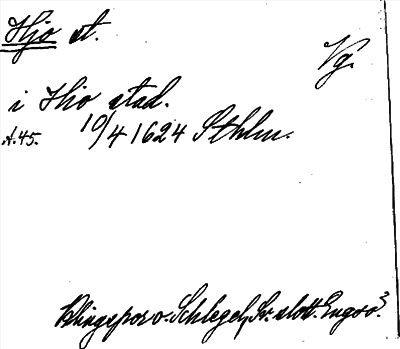 Hjo st.
Vg.
i Hio stad.
A.45. 10/4 1624 Sthlm.
Klingspor o. Schlegel, Sv. slott. Engsö.